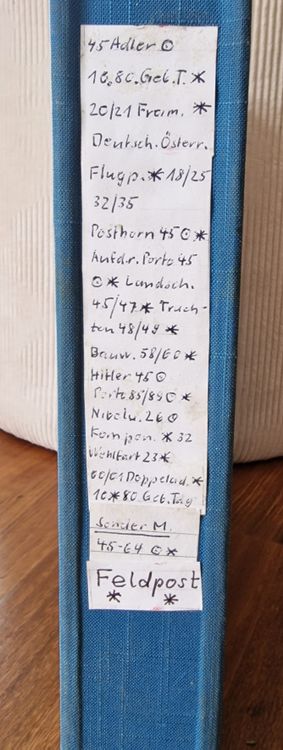 45 Adler ⊙
10.80. Geb. T. *
20/21 Freim. *
Deutsch. Österr.
Flugp. * 18/25
32/35
Posthorn 45 ⊙ *
Aufdr. Porto 45
⊙ * Landsch.
45/47 * Trach-
ten 48/49 *
Bauw. 58/60 *
Hitler 45 ⊙
Porto 85/89 ⊙ *
Nibelu. 26 ⊙
Kompon. * 32
Wohlfart 23 *
60/61 Doppelad. *
10 * 80 Geb. Tag
Sonder M.
45-64 ⊙ *
Feldpost
* *